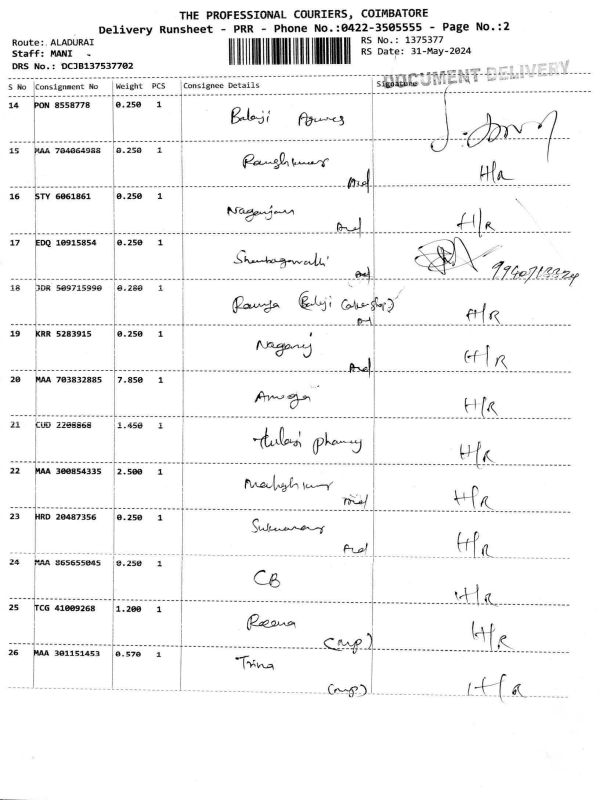 THE PROFESSIONAL COURIERS, COIMBATORE
Delivery Runsheet - PRR - Phone No.:0422-3505555 - Page No.:2
Route: ALADURAI
Staff: MANI
DRS No.: DCJB137537702
RS No.: 1375377
RS Date: 31-May-2024
S No Consignment No Weight PCS Consignee Details Signature
DOCUMENT DELIVERY
14 PON 8558778 0.250 1 Balaji
15 MAA 704064988 0.250 1 H/R
16 STY 6061861 0.250 1 H/R
17 EDQ 10915854 0.250 1
18 JDR 509715990 0.280 1 Ramya (Balaji cake shop) H/R
19 KRR 5283915 0.250 1 Nagaraj H/R
20 MAA 703832885 7.850 1 H/R
21 CUD 2208868 1.450 1 Tulasi Pharmy H/R
22 MAA 300854335 2.500 1 H/R
23 HRD 20487356 0.250 1 H/R
24 MAA 865655045 0.250 1 CB H/R
25 TCG 41009268 1.200 1 Reena (mp) H/R
26 MAA 301151453 0.570 1 Trina (mp) H/R